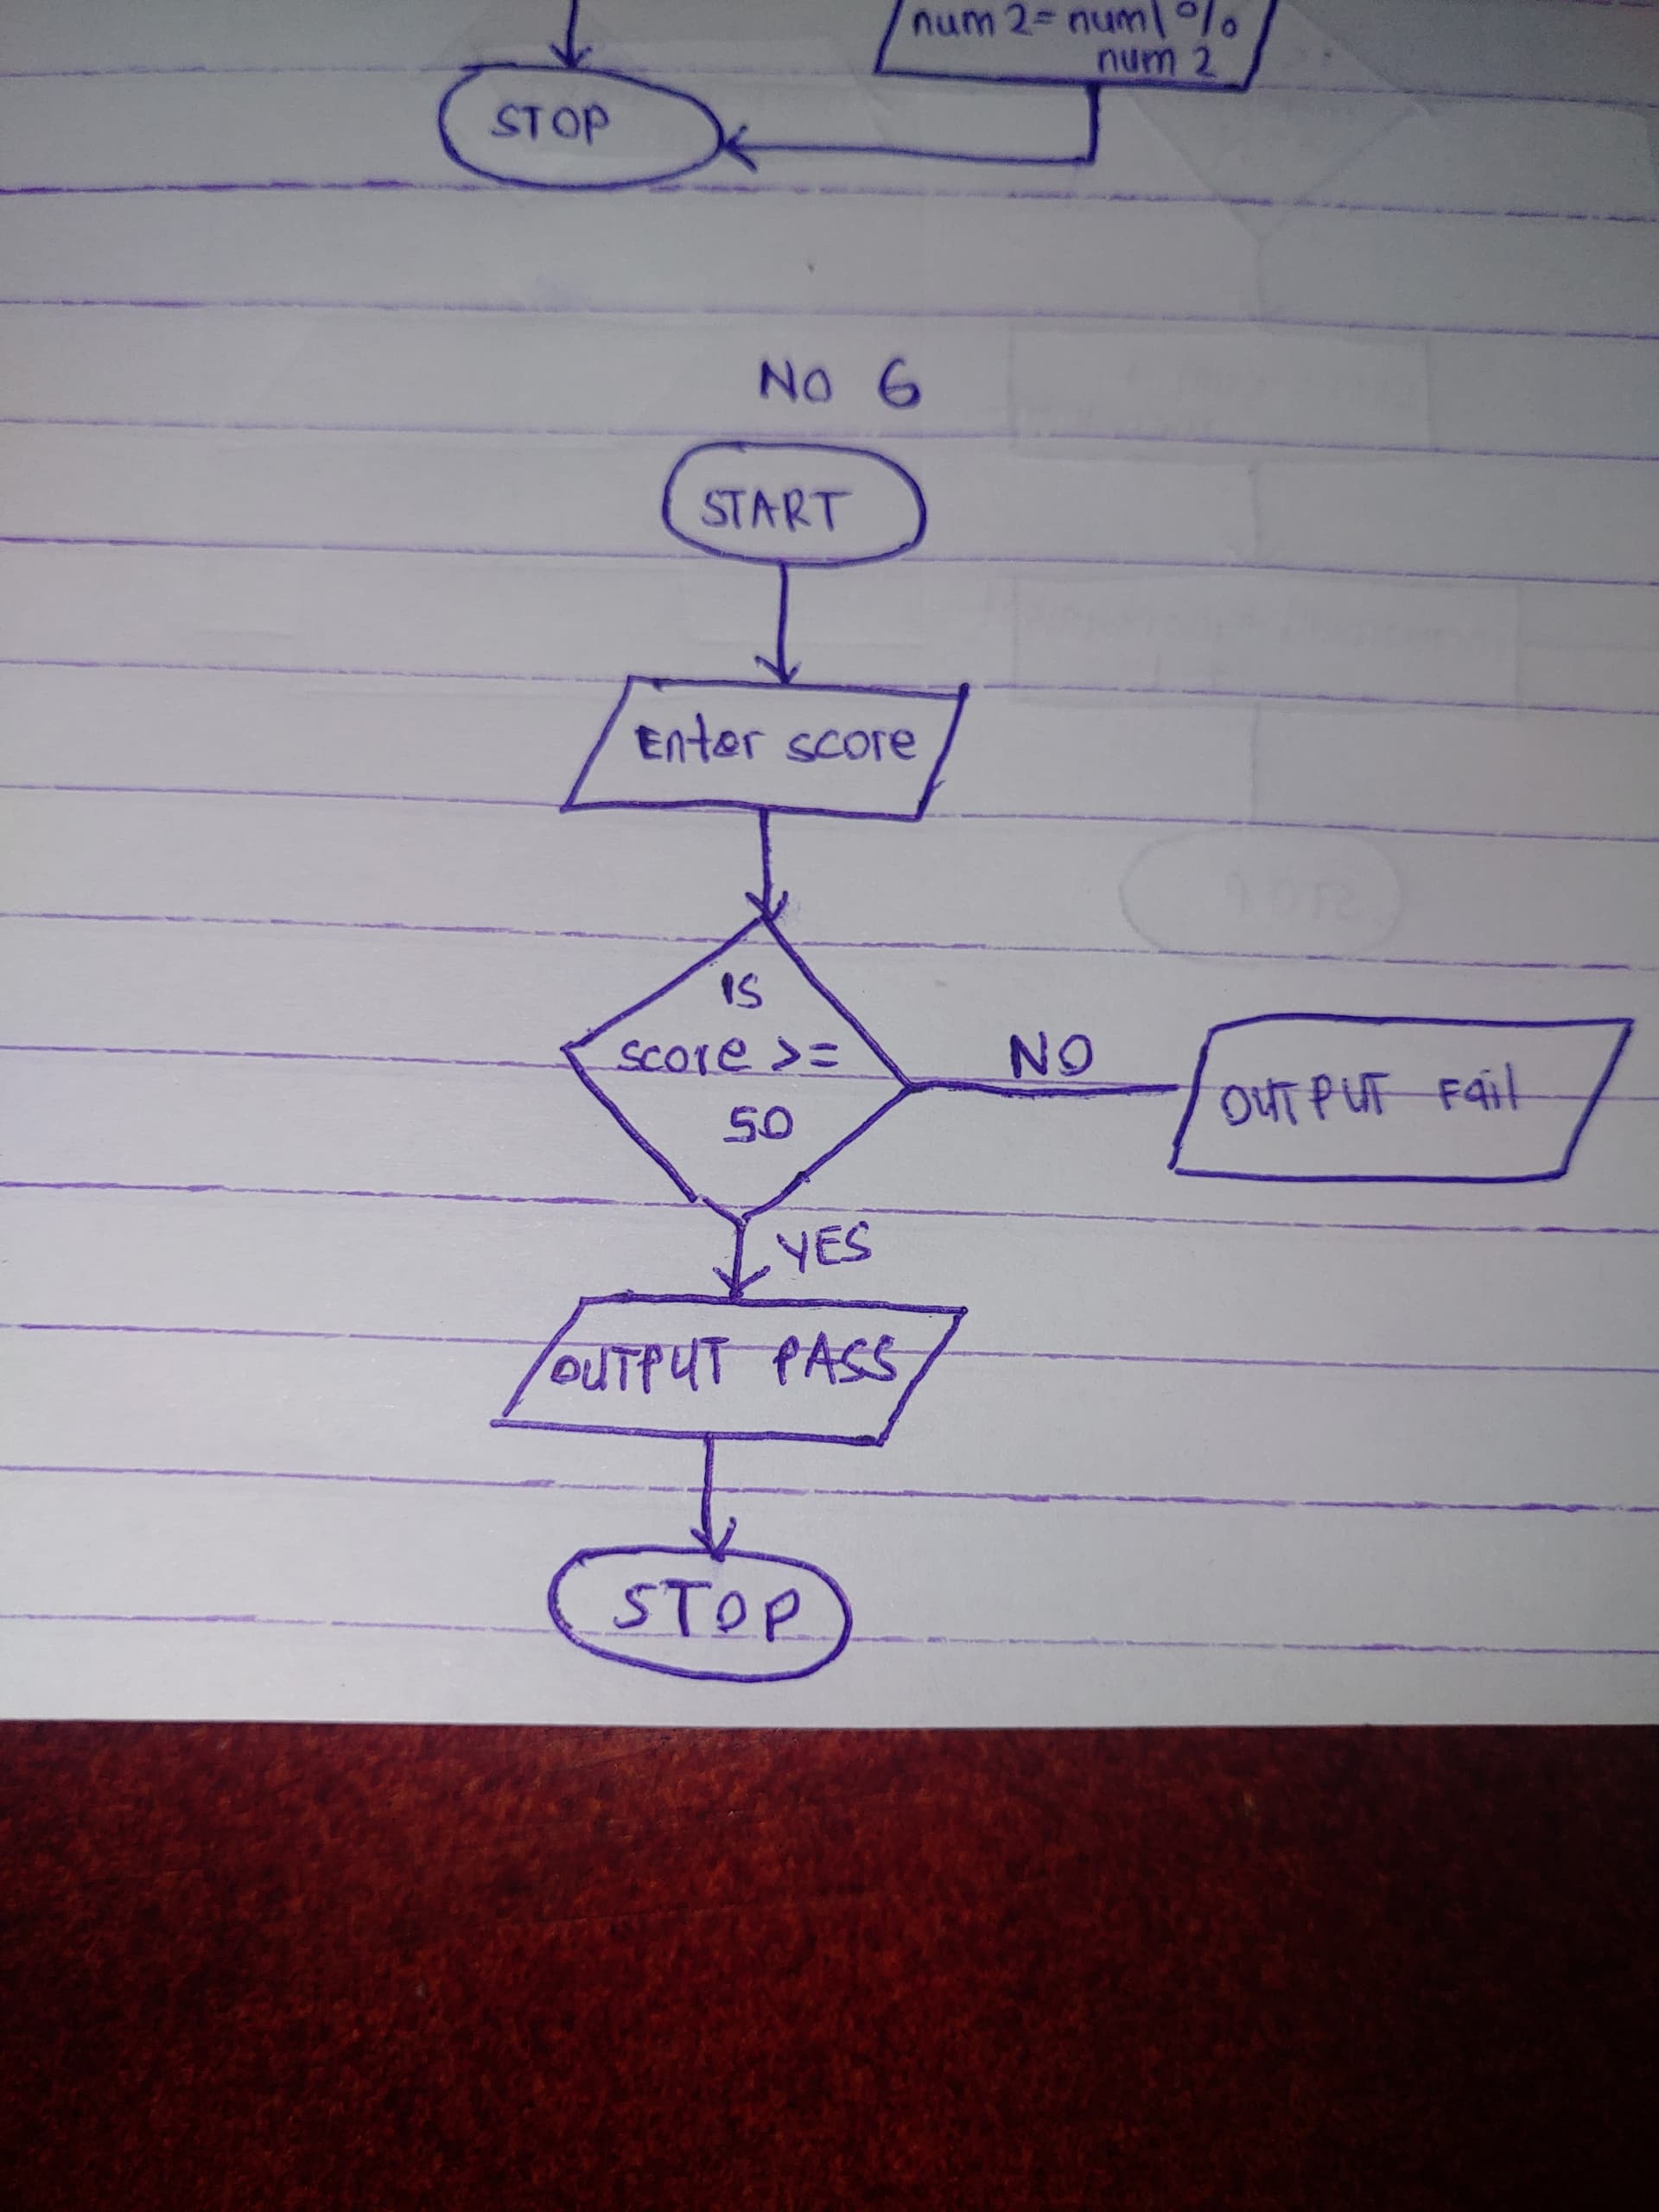 num 2 = num1 %
num 2
STOP
NO 6
START
Enter score
is
score >=
50
NO
OUTPUT Fail
YES
OUTPUT PASS
STOP